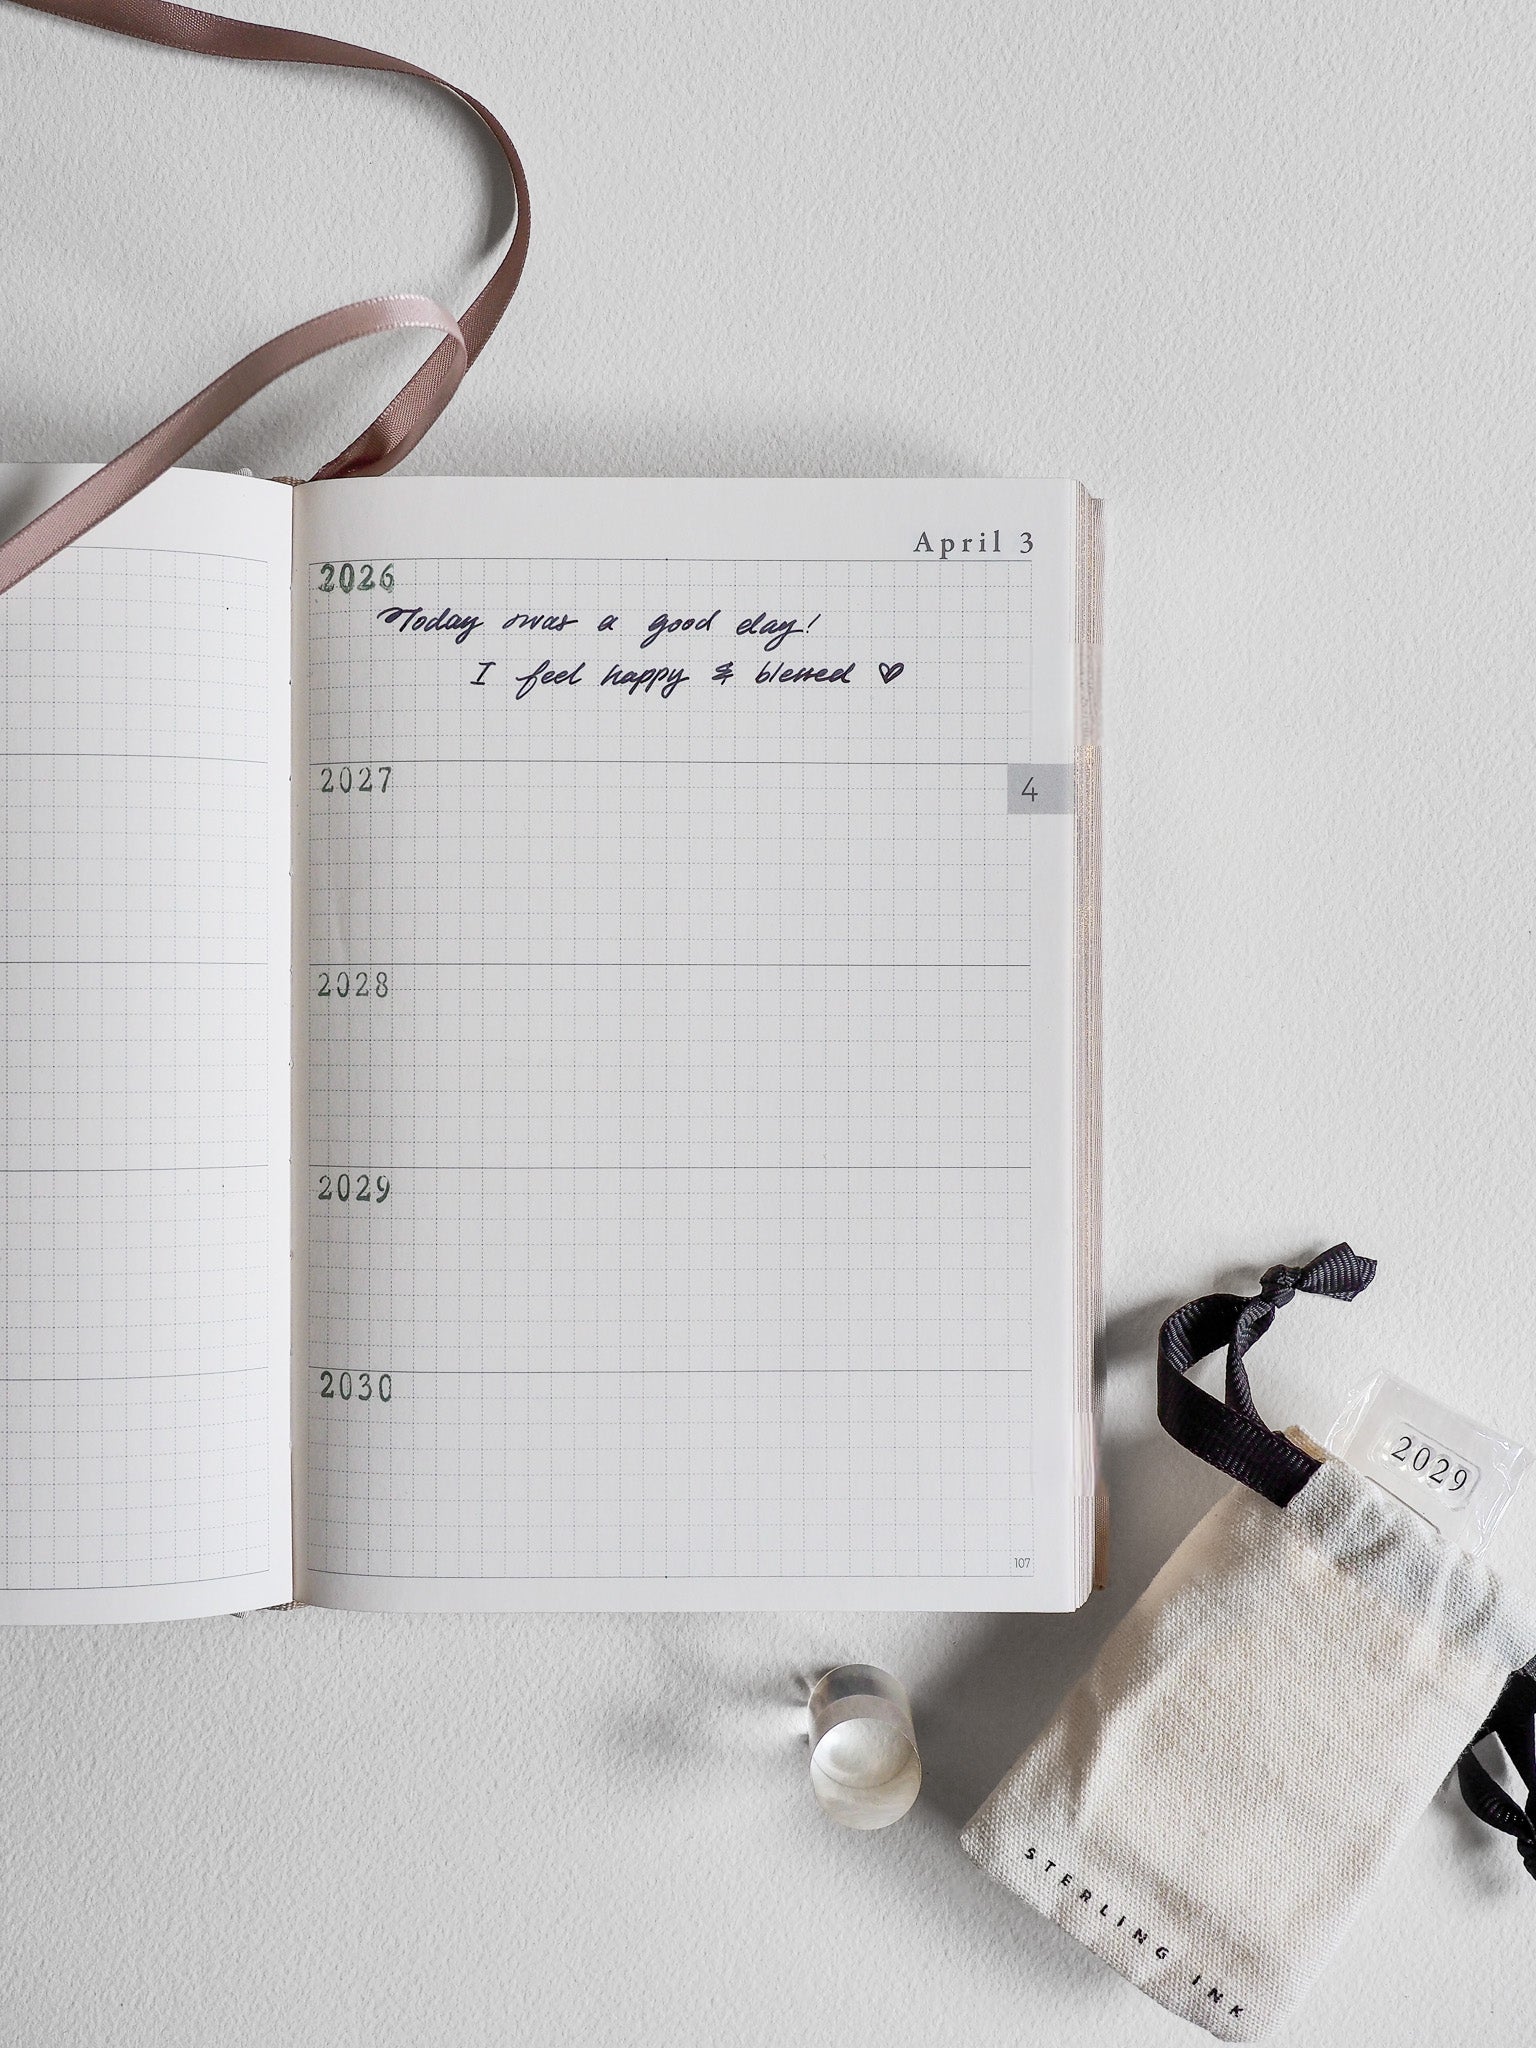 April 3
2026
Today was a good day!
I feel happy & blessed ♡
2027
4
2028
2029
2030
107
2029
STERLING INK